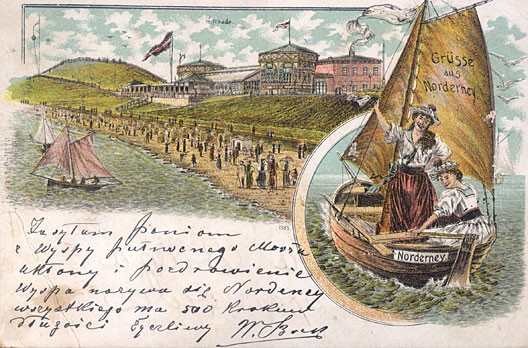 Strande.
Grüsse
aus
Norderney
Norderney
Zasyłam Paniom
z Wyspy północnego Morza
ukłony i pozdrowienie
Wyspa nazywa się Norderney
wszystkiego ma 500 kroków
długości Życzliwy W. Bock